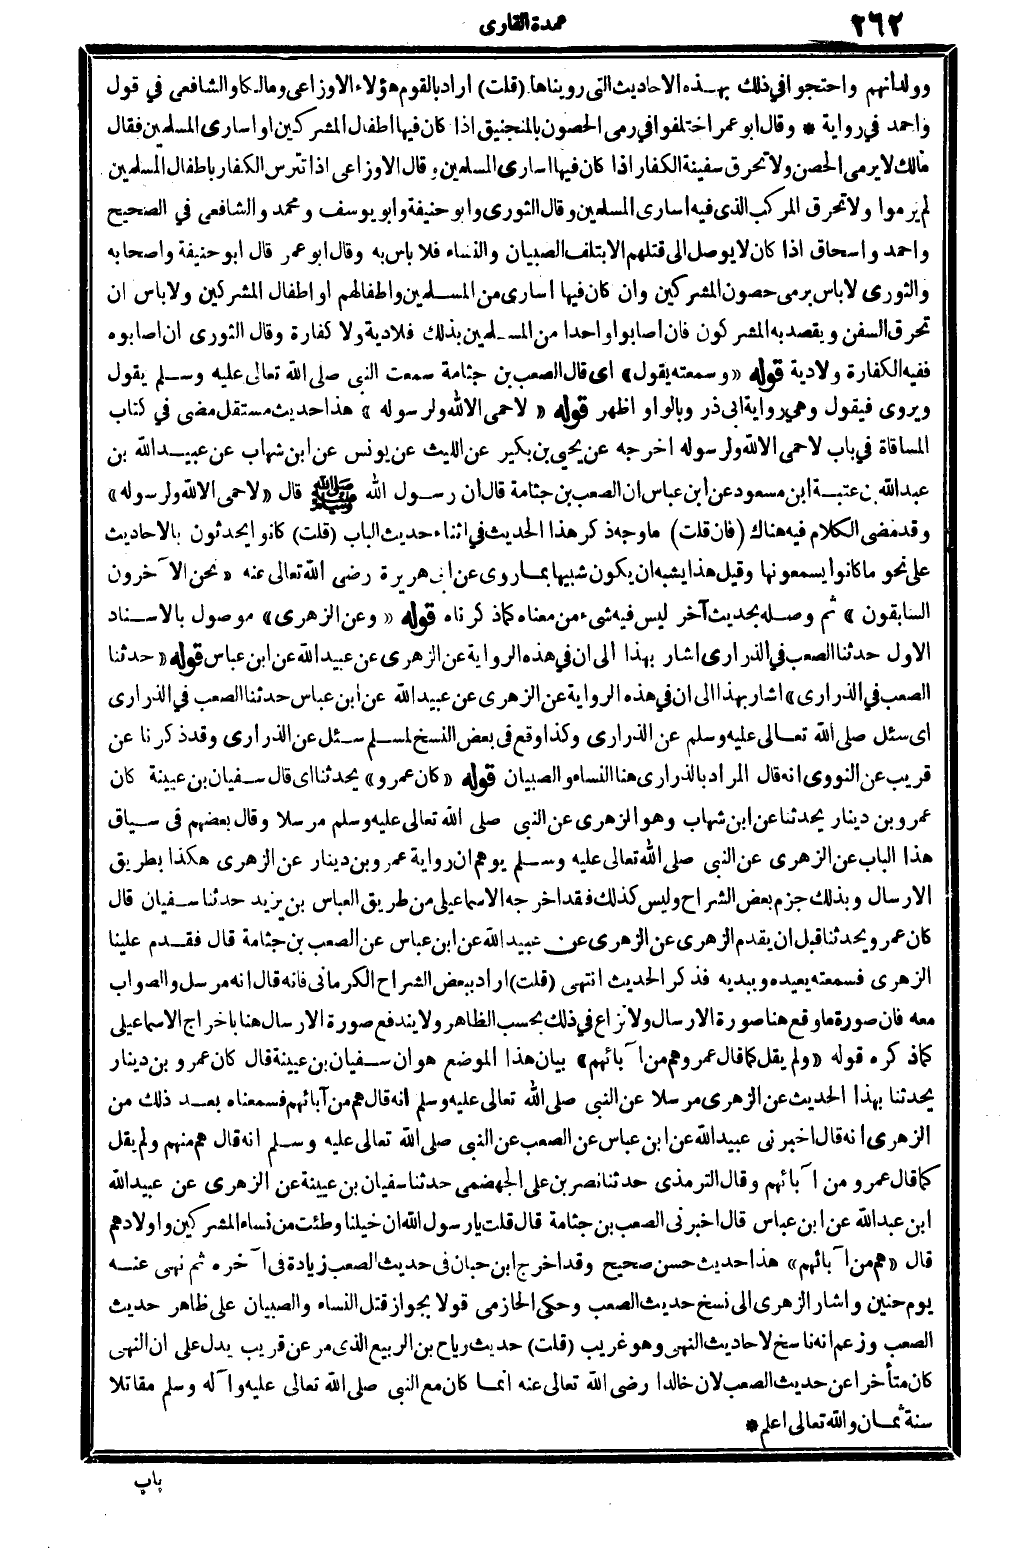 ٢٦٢
عمدة القارى
وولدانهم واحتجوا فى ذلك بهذه الاحاديث التى رويناها (قلت) اراد بالقوم هؤلاء الاوزاعى ومالكا والشافعى في قول
واحمد فى رواية * وقال ابو عمر اختلفوا فى رمى الحصون بالمنجنيق اذا كان فيها اطفال المشركين او اسارى المسلمين فقال
مالك لا يرمى الحصن ولا تحرق سفينة الكفار اذا كان فيها اسارى المسلمين وقال الاوزاعى اذا تترس الكفار باطفال المسلمين
لم يرموا ولا تحرق المركب الذى فيه اسارى المسلمين وقال الثورى وابو حنيفة وابو يوسف ومحمد والشافعى في الصحيح
واحمد واسحاق اذا كان لا يوصل الى قتلهم الا بتلف الصبيان والنساء فلا باس به وقال ابو عمر قال ابو حنيفة واصحابه
والثورى لا باس برمى حصون المشركين وان كان فيها اسارى من المسلمين واطفالهم او اطفال المشركين ولا باس ان
تحرق السفن ويقصد به المشركون فان اصابوا واحدا من المسلمين بذلك فلا دية ولا كفارة وقال الثورى ان اصابوه
ففيه الكفارة ولا دية قوله «وسمعته يقول» اى قال الصعب بن جثامة سمعت النبى صلى الله تعالى عليه وسلم يقول
ويروى فيقول وهى رواية ابى ذر وبالواو اظهر قوله « لا حمى الا لله ولرسوله » هذا حديث مستقل مضى في كتاب
المساقاة فى باب لا حمى الا لله ولرسوله اخرجه عن يحيى بن بكير عن الليث عن يونس عن ابن شهاب عن عبيد الله بن
عبد الله بن عتبة ابن مسعود عن ابن عباس ان الصعب بن جثامة قال ان رسول الله ﷺ قال «لا حمى الا لله ولرسوله»
وقد مضى الكلام فيه هناك (فان قلت) ما وجه ذكر هذا الحديث فى اثناء حديث الباب (قلت) كانوا يحدثون بالاحاديث
على نحو ما كانوا يسمعونها وقيل هذا يشبه ان يكون شبيها بما روى عن ابى هريرة رضى الله تعالى عنه «نحن الآخرون
السابقون » ثم وصله بحديث آخر ليس فيه شىء من معناه كما ذكرناه قوله «وعن الزهرى» موصول بالاسناد
الاول حدثنا الصعب فى الذرارى اشار بهذا الى ان فى هذه الرواية عن الزهرى عن عبيد الله عن ابن عباس قوله «حدثنا
الصعب فى الذرارى» اشار بهذا الى ان فى هذه الرواية عن الزهرى عن عبيد الله عن ابن عباس حدثنا الصعب فى الذرارى
اى سئل صلى الله تعالى عليه وسلم عن الذرارى وكذا وقع فى بعض النسخ لمسلم سئل عن الذرارى وقد ذكرنا عن
قريب عن النووى انه قال المراد بالذرارى هنا النساء والصبيان قوله «كان عمرو» يحدثنا اى قال سفيان بن عيينة كان
عمرو بن دينار يحدثنا عن ابن شهاب وهو الزهرى عن النبى صلى الله تعالى عليه وسلم مرسلا وقال بعضهم فى سياق
هذا الباب عن الزهرى عن النبى صلى الله تعالى عليه وسلم يوهم ان رواية عمرو بن دينار عن الزهرى هكذا بطريق
الارسال وبذلك جزم بعض الشراح وليس كذلك فقد اخرجه الاسماعيلى من طريق العباس بن يزيد حدثنا سفيان قال
كان عمرو يحدثنا قبل ان يقدم الزهرى عن الزهرى عن عبيد الله عن ابن عباس عن الصعب بن جثامة قال فقدم علينا
الزهرى فسمعته يعيده ويبديه فذكر الحديث انتهى (قلت) اراد ببعض الشراح الكرمانى فانه قال انه مرسل والصواب
معه فان صورة ما وقع هنا صورة الارسال ولا نزاع فى ذلك بحسب الظاهر ولا يندفع صورة الارسال هنا باخراج الاسماعيلى
كما ذكره قوله «ولم يقل كما قال عمرو هم من آبائهم» بيان هذا الموضع هو ان سفيان بن عيينة قال كان عمرو بن دينار
يحدثنا بهذا الحديث عن الزهرى مرسلا عن النبى صلى الله تعالى عليه وسلم انه قال هم من آبائهم فسمعناه بعد ذلك من
الزهرى انه قال اخبرنى عبيد الله عن ابن عباس عن الصعب عن النبى صلى الله تعالى عليه وسلم انه قال هم منهم ولم يقل
كما قال عمرو من آبائهم وقال الترمذى حدثنا نصر بن على الجهضمى حدثنا سفيان بن عيينة عن الزهرى عن عبيد الله
ابن عبد الله عن ابن عباس قال اخبرنى الصعب بن جثامة قال قلت يا رسول الله ان خيلنا وطئت من نساء المشركين واولادهم
قال «هم من آبائهم» هذا حديث حسن صحيح وقد اخرج ابن حبان فى حديث الصعب زيادة فى آخره ثم نهى عنه
يوم حنين واشار الزهرى الى نسخ حديث الصعب وحكى الحازمى قولا بجواز قتل النساء والصبيان على ظاهر حديث
الصعب وزعم انه ناسخ لاحاديث النهى وهو غريب (قلت) حديث رباح بن الربيع الذى مر عن قريب يدل على ان النهى
كان متأخرا عن حديث الصعب لان خالدا رضى الله تعالى عنه انما كان مع النبى صلى الله تعالى عليه وآله وسلم مقاتلا
سنة ثمان والله تعالى اعلم *
باب